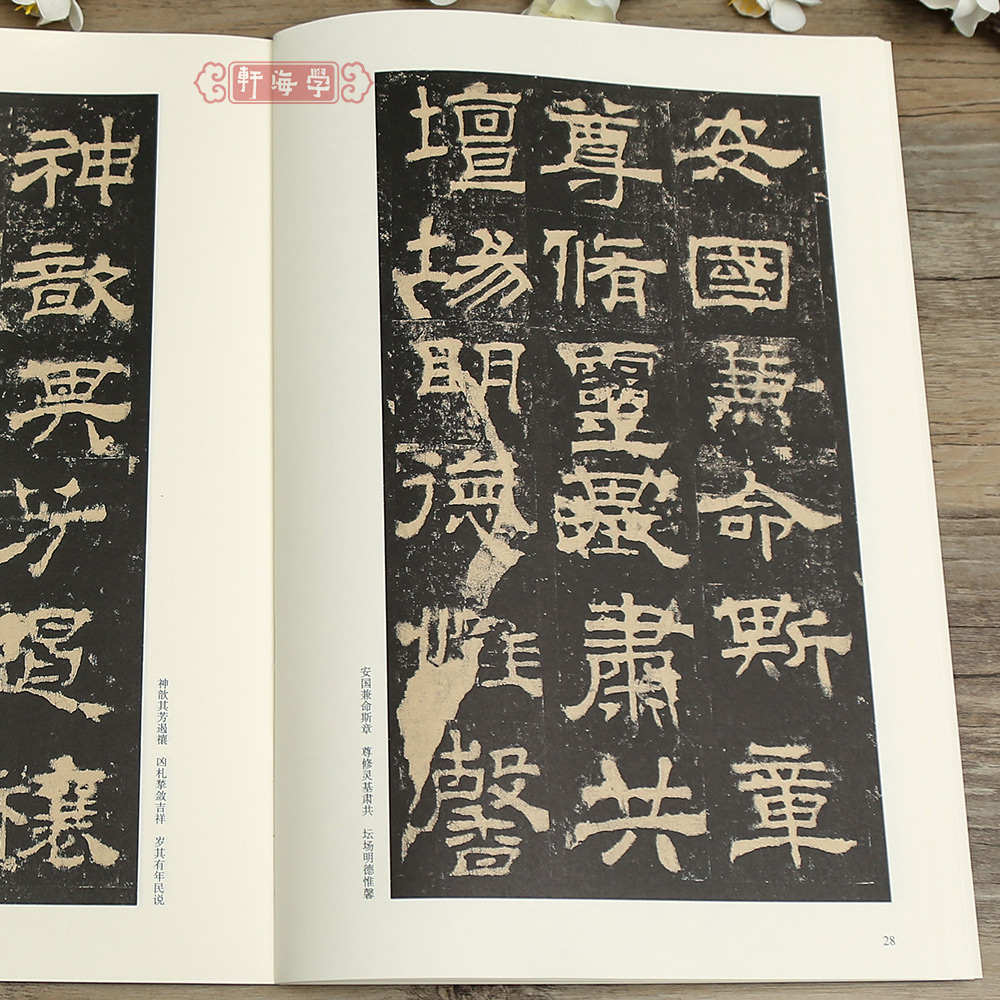 軒海学
安國兼命斯章
尊脩靈基肅共
壇場明德惟馨
安国兼命斯章 尊修灵基肃共 坛场明德惟馨
28
神歆其芳遏禳
神歆其芳遏禳 凶札揫敛吉祥 岁其有年民说